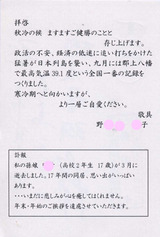 拝啓
秋冷の候 ますますご健勝のことと
存じ上げます。
政活の不安、経済の低迷に追い打ちをかけた
猛暑が日本列島を襲い、九月には郡上八幡
で最高気温39.1度という全国一番の記録を
つくりました。
寒冷期へと向かいますが、
より一層ご自愛ください。
敬具
野 子
訃報
私の孫娘 (高校2年生 17歳)が3月に
逝去しました。17年間の同居、思い出がいっぱい
あります。
・・いまだに悲しみが心を癒してはくれません。
年末・年始のご挨拶を遠慮させていただきます。